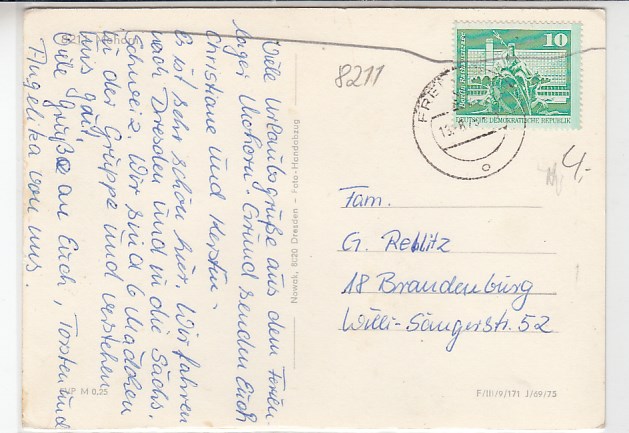 8211 Mohorn
Viele Urlaubsgrüße aus dem Ferien-
lager Mohorn/Grund senden Euch
Christiane und Kerstin.
Es ist sehr schön hier. Wir fahren
nach Dresden und in die Sächs.
Schweiz. Wir sind 6 Mädchen
in der Gruppe und verstehen
uns gut.
Viele Grüße an Euch, Torsten und
Angelika von uns.
EVP M 0,25
Nowak, 8020 Dresden – Foto-Handabzug
8211
10
DEUTSCHE DEMOKRATISCHE REPUBLIK
4,-
Fam.
G. Reblitz
18 Brandenburg
Willi-Sängerstr. 52
F/III/9/171 J/69/75